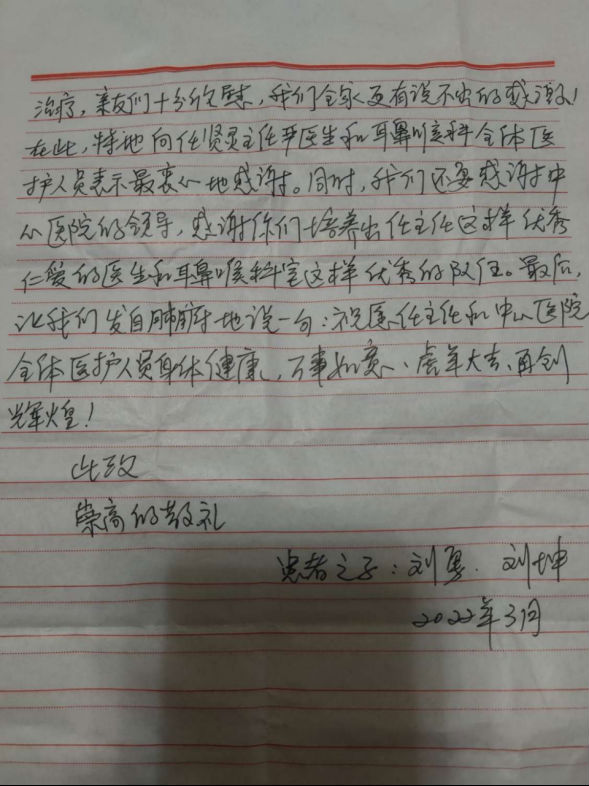 治疗，亲友们十分欣慰，我们全家更有说不出的感激！
在此，特地向任贤灵主任医生和耳鼻喉科全体医
护人员表示最衷心地感谢。同时，我们还要感谢中
心医院的领导，感谢你们培养出任主任这样优秀
仁爱的医生和耳鼻喉科室这样优秀的队伍。最后，
让我们发自肺腑地说一句：祝愿任主任和中心医院
全体医护人员身体健康、万事如意、虎年大吉、再创
辉煌！
此致
崇高的敬礼
患者之子：刘勇、刘坤
2022年3月